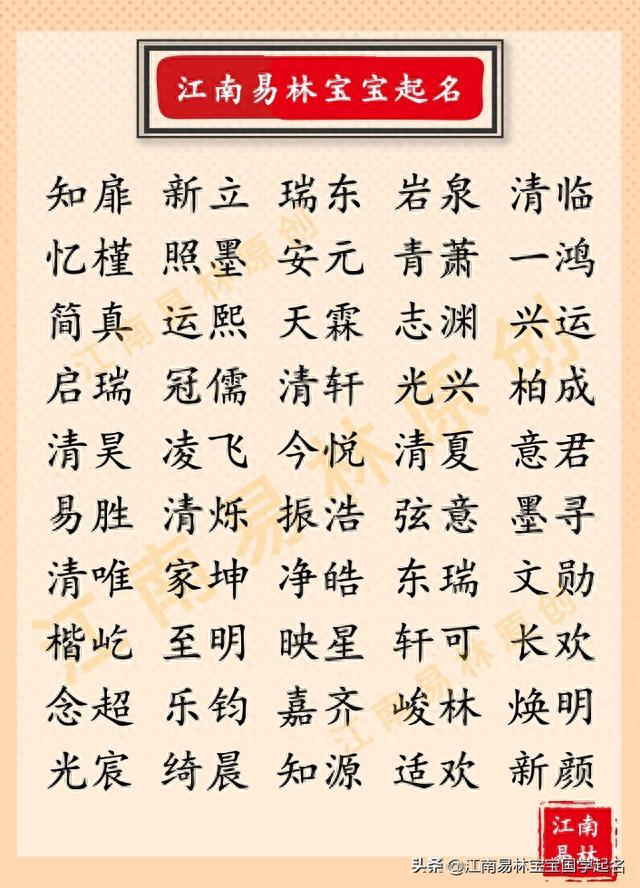 江南易林宝宝起名
知扉 新立 瑞东 岩泉 清临
忆槿 照墨 安元 青萧 一鸿
简真 运熙 天霖 志渊 兴运
启瑞 冠儒 清轩 光兴 柏成
清昊 凌飞 今悦 清夏 意君
易胜 清烁 振浩 弦意 墨寻
清唯 家坤 净皓 东瑞 文勋
楷屹 至明 映星 轩可 长欢
念超 乐钧 嘉齐 峻林 焕明
光宸 绮晨 知源 适欢 新颜
江南易林原创
江南易林原创
江南易林原创
江南
易林
头条 @江南易林宝宝国学起名